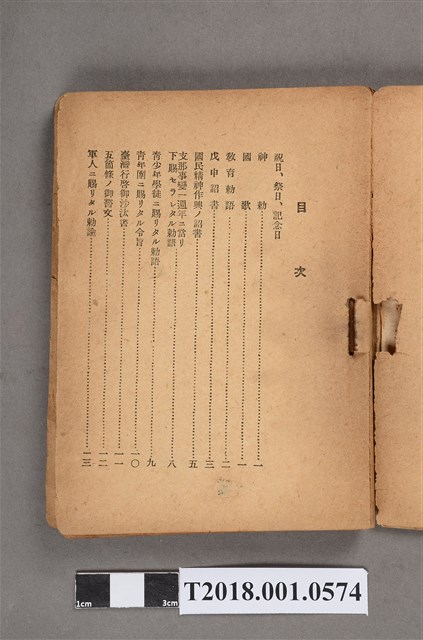 目次
祝日、祭日、記念日
神勅……一
國歌……一
教育勅語……二
戊申詔書……三
國民精神作興ノ詔書……五
支那事變一週年ニ當リ
下賜セラレタル勅語……八
青少年學徒ニ賜リタル勅語……九
青年團ニ賜リタル令旨……一〇
臺灣行啓御沙汰書……一一
五箇條ノ御誓文……一二
軍人ニ賜リタル勅諭……一三
1cm 3cm
T2018.001.0574